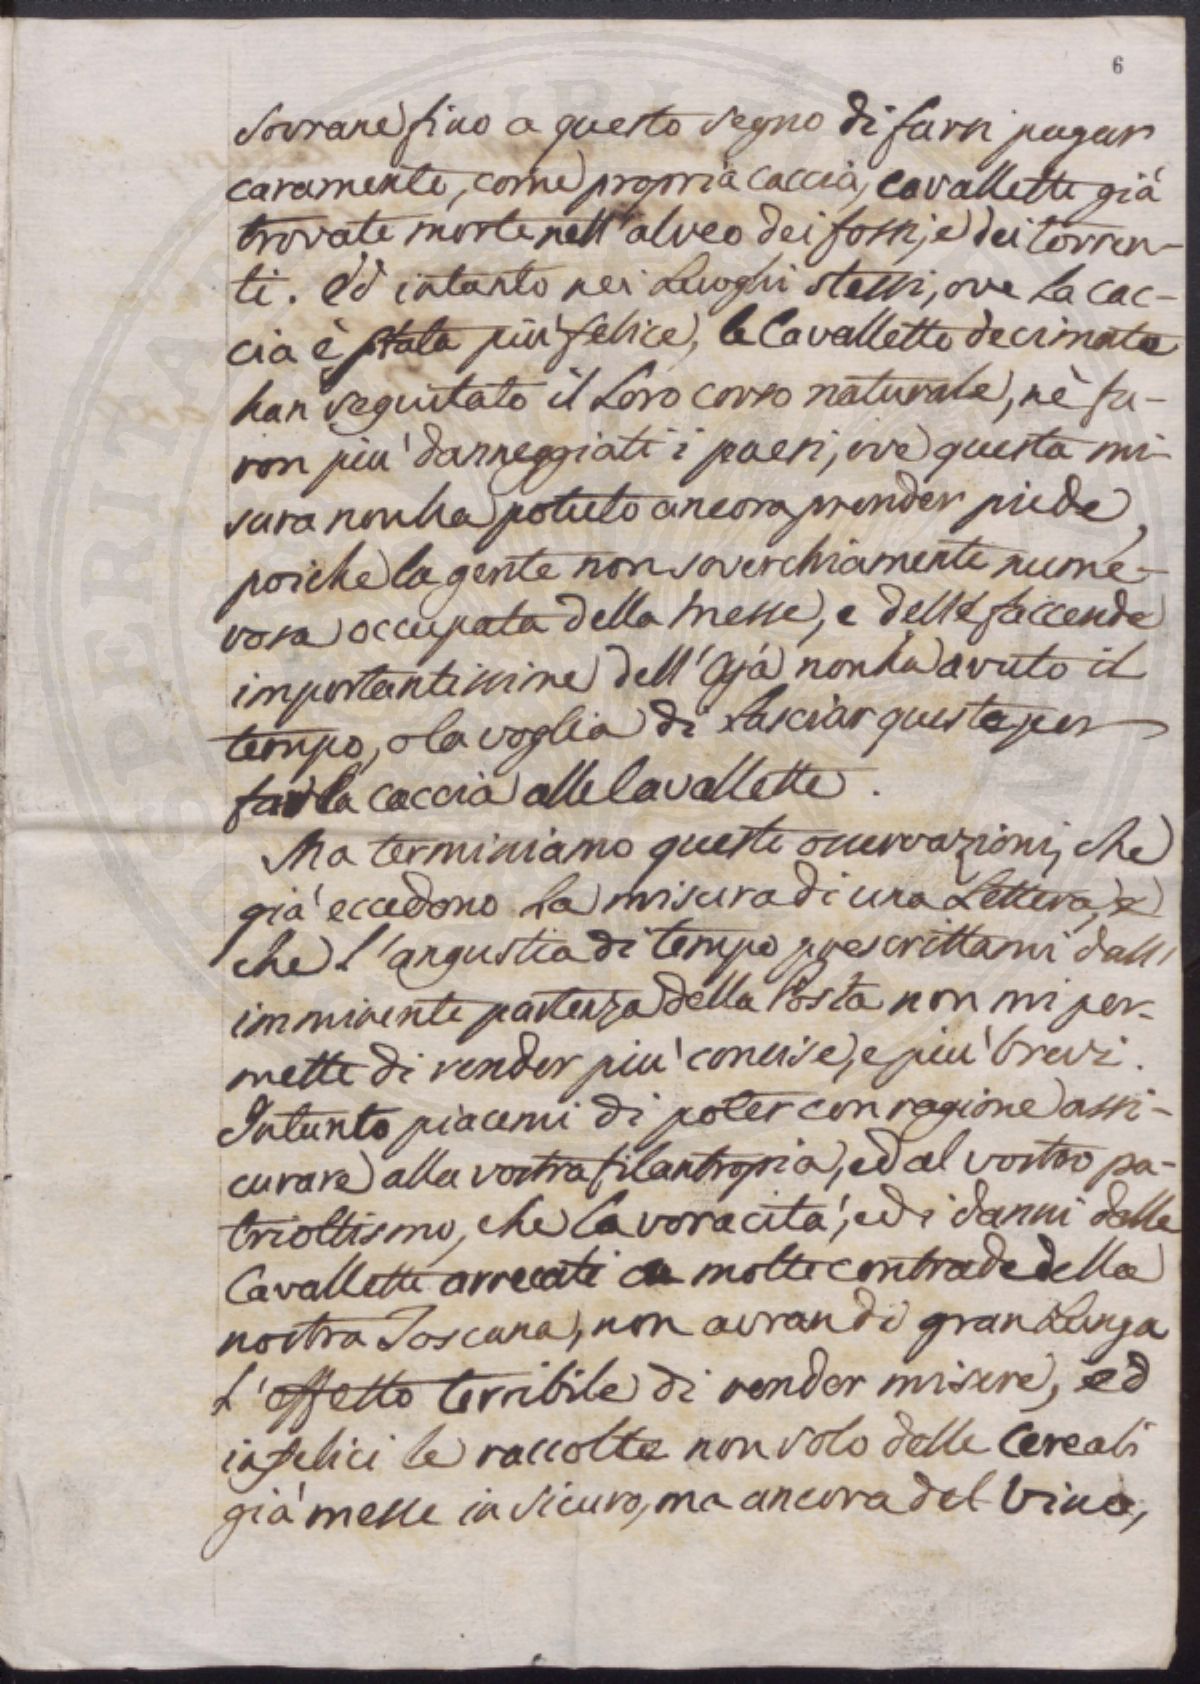 6
Sovrane fino a questo segno di farsi pagar
caramente, come propria caccia, cavallette già
trovate morte nell'alveo dei fossi, e dei torren-
ti. Ed intanto nei Luoghi stessi, ove la cac-
cia è stata più felice, le Cavallette decimate
han seguitato il Loro corso naturale, nè fu-
ron più danneggiati i paesi, ove questa mi-
sura non ha potuto ancora prender piede,
poiche la gente non soverchiamente nume-
rosa occupata della Messe, e delle faccende
importantissime dell'Aja non ha avuto il
tempo, o la voglia di Lasciar queste per
far la caccia alle Cavallette.
Ma terminiamo queste osservazioni, che
già eccedono La misura di una Lettera, e
che l'angustia di tempo prescrittami dall'
imminente partenza della Posta non mi per-
mette di render più concise, e più brevi.
Intanto piacemi di poter con ragione assi-
curare alla vostra filantropia, ed al vostro pa-
triottismo, che la voracità, ed i danni delle
Cavallette arrecati a molte contrade della
nostra Toscana, non avran di gran Lunga
L'effetto terribile di render misere, ed
infelici le raccolte non solo delle Cereali
già messe in sicuro, ma ancora del Vino,